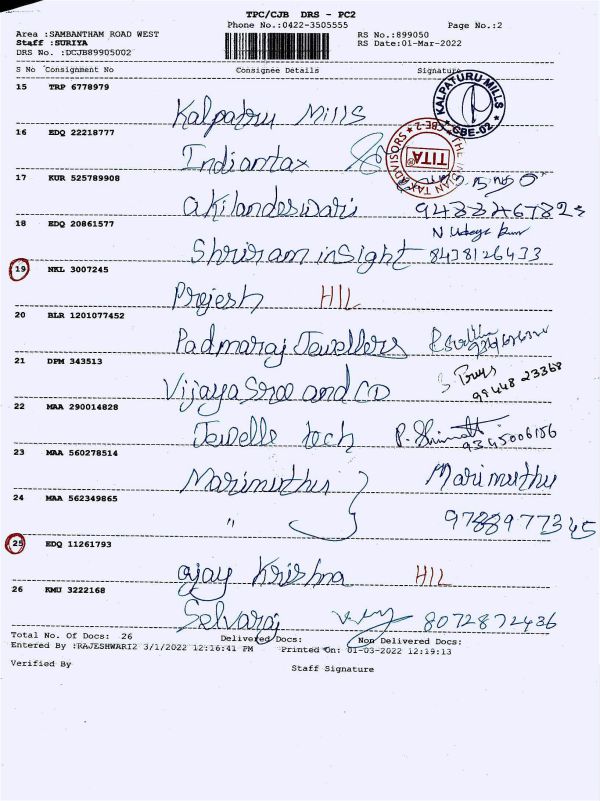 TPC/CJB DRS - PC2
Phone No.:0422-3505555 Page No.:2
Area :SAMBANTHAM ROAD WEST RS No.:899050
Staff :SURIYA RS Date:01-Mar-2022
DRS No. :DCJB89905002
S No Consignment No Consignee Details Signature
15 TRP 6778979
Kalpatru Mills
KALPATURU MILLS
CBE-02
16 EDQ 22218777
Indiantax
TITA
17 KUR 525789908
akilandeswari
18 EDQ 20861577
Shriram insight 8438126433
19 NKL 3007245
Prajesh HIL
20 BLR 1201077452
Padmaraj Jewellers
21 DPM 343513
Vijaya Sree and CD 99448 23368
22 MAA 290014828
Jewelle tech
23 MAA 560278514
Marimuthu Marimuthu
24 MAA 562349865
" 9788977345
25 EDQ 11261793
ajay Krishna HIL
26 KMU 3222168
Selvaraj 8072872436
Total No. Of Docs: 26 Delivered Docs: Non Delivered Docs:
Entered By :RAJESHWARI2 3/1/2022 12:16:41 PM Printed On: 01-03-2022 12:19:13
Verified By Staff Signature